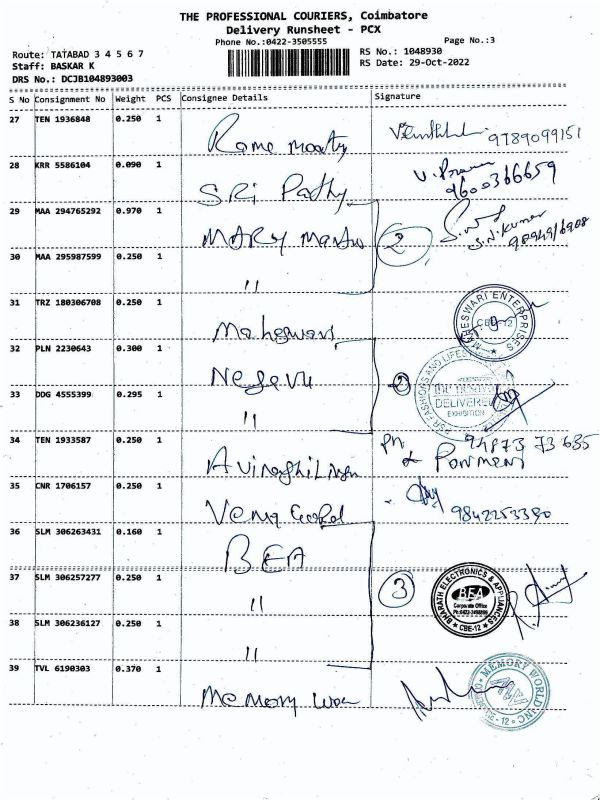 THE PROFESSIONAL COURIERS, Coimbatore
Delivery Runsheet - PCX
Phone No.:0422-3505555
Page No.:3
Route: TATABAD 3 4 5 6 7
RS No.: 1048930
Staff: BASKAR K
RS Date: 29-Oct-2022
DRS No.: DCJB104893003
S No Consignment No Weight PCS Consignee Details Signature
27 TEN 1936848 0.250 1 Rame Moorthy 9789099151
28 KRR 5586104 0.090 1 SRi Pathy 9600366659
29 MAA 294765292 0.970 1 MARY 2 S.N.Kumar
30 MAA 295987599 0.250 1 "
31 TRZ 180306708 0.250 1 Maheswari MAHESWARI ENTERPRISES CBE-12
32 PLN 2230643 0.300 1 Negevu
33 DDG 4555399 0.295 1 " 2 PSR FASHIONS AND DELIVERED EXHIBITION
34 TEN 1933587 0.250 1 94873 73685
35 CNR 1706157 0.250 1 9842253380
36 SLM 306263431 0.160 1 BEA
37 SLM 306257277 0.250 1 " 3 BHARATH ELECTRONICS & APPLIANCES BEA Corporate Office CBE-12
38 SLM 306236127 0.250 1 "
39 TVL 6190303 0.370 1 Memory MEMORY WORLD INC